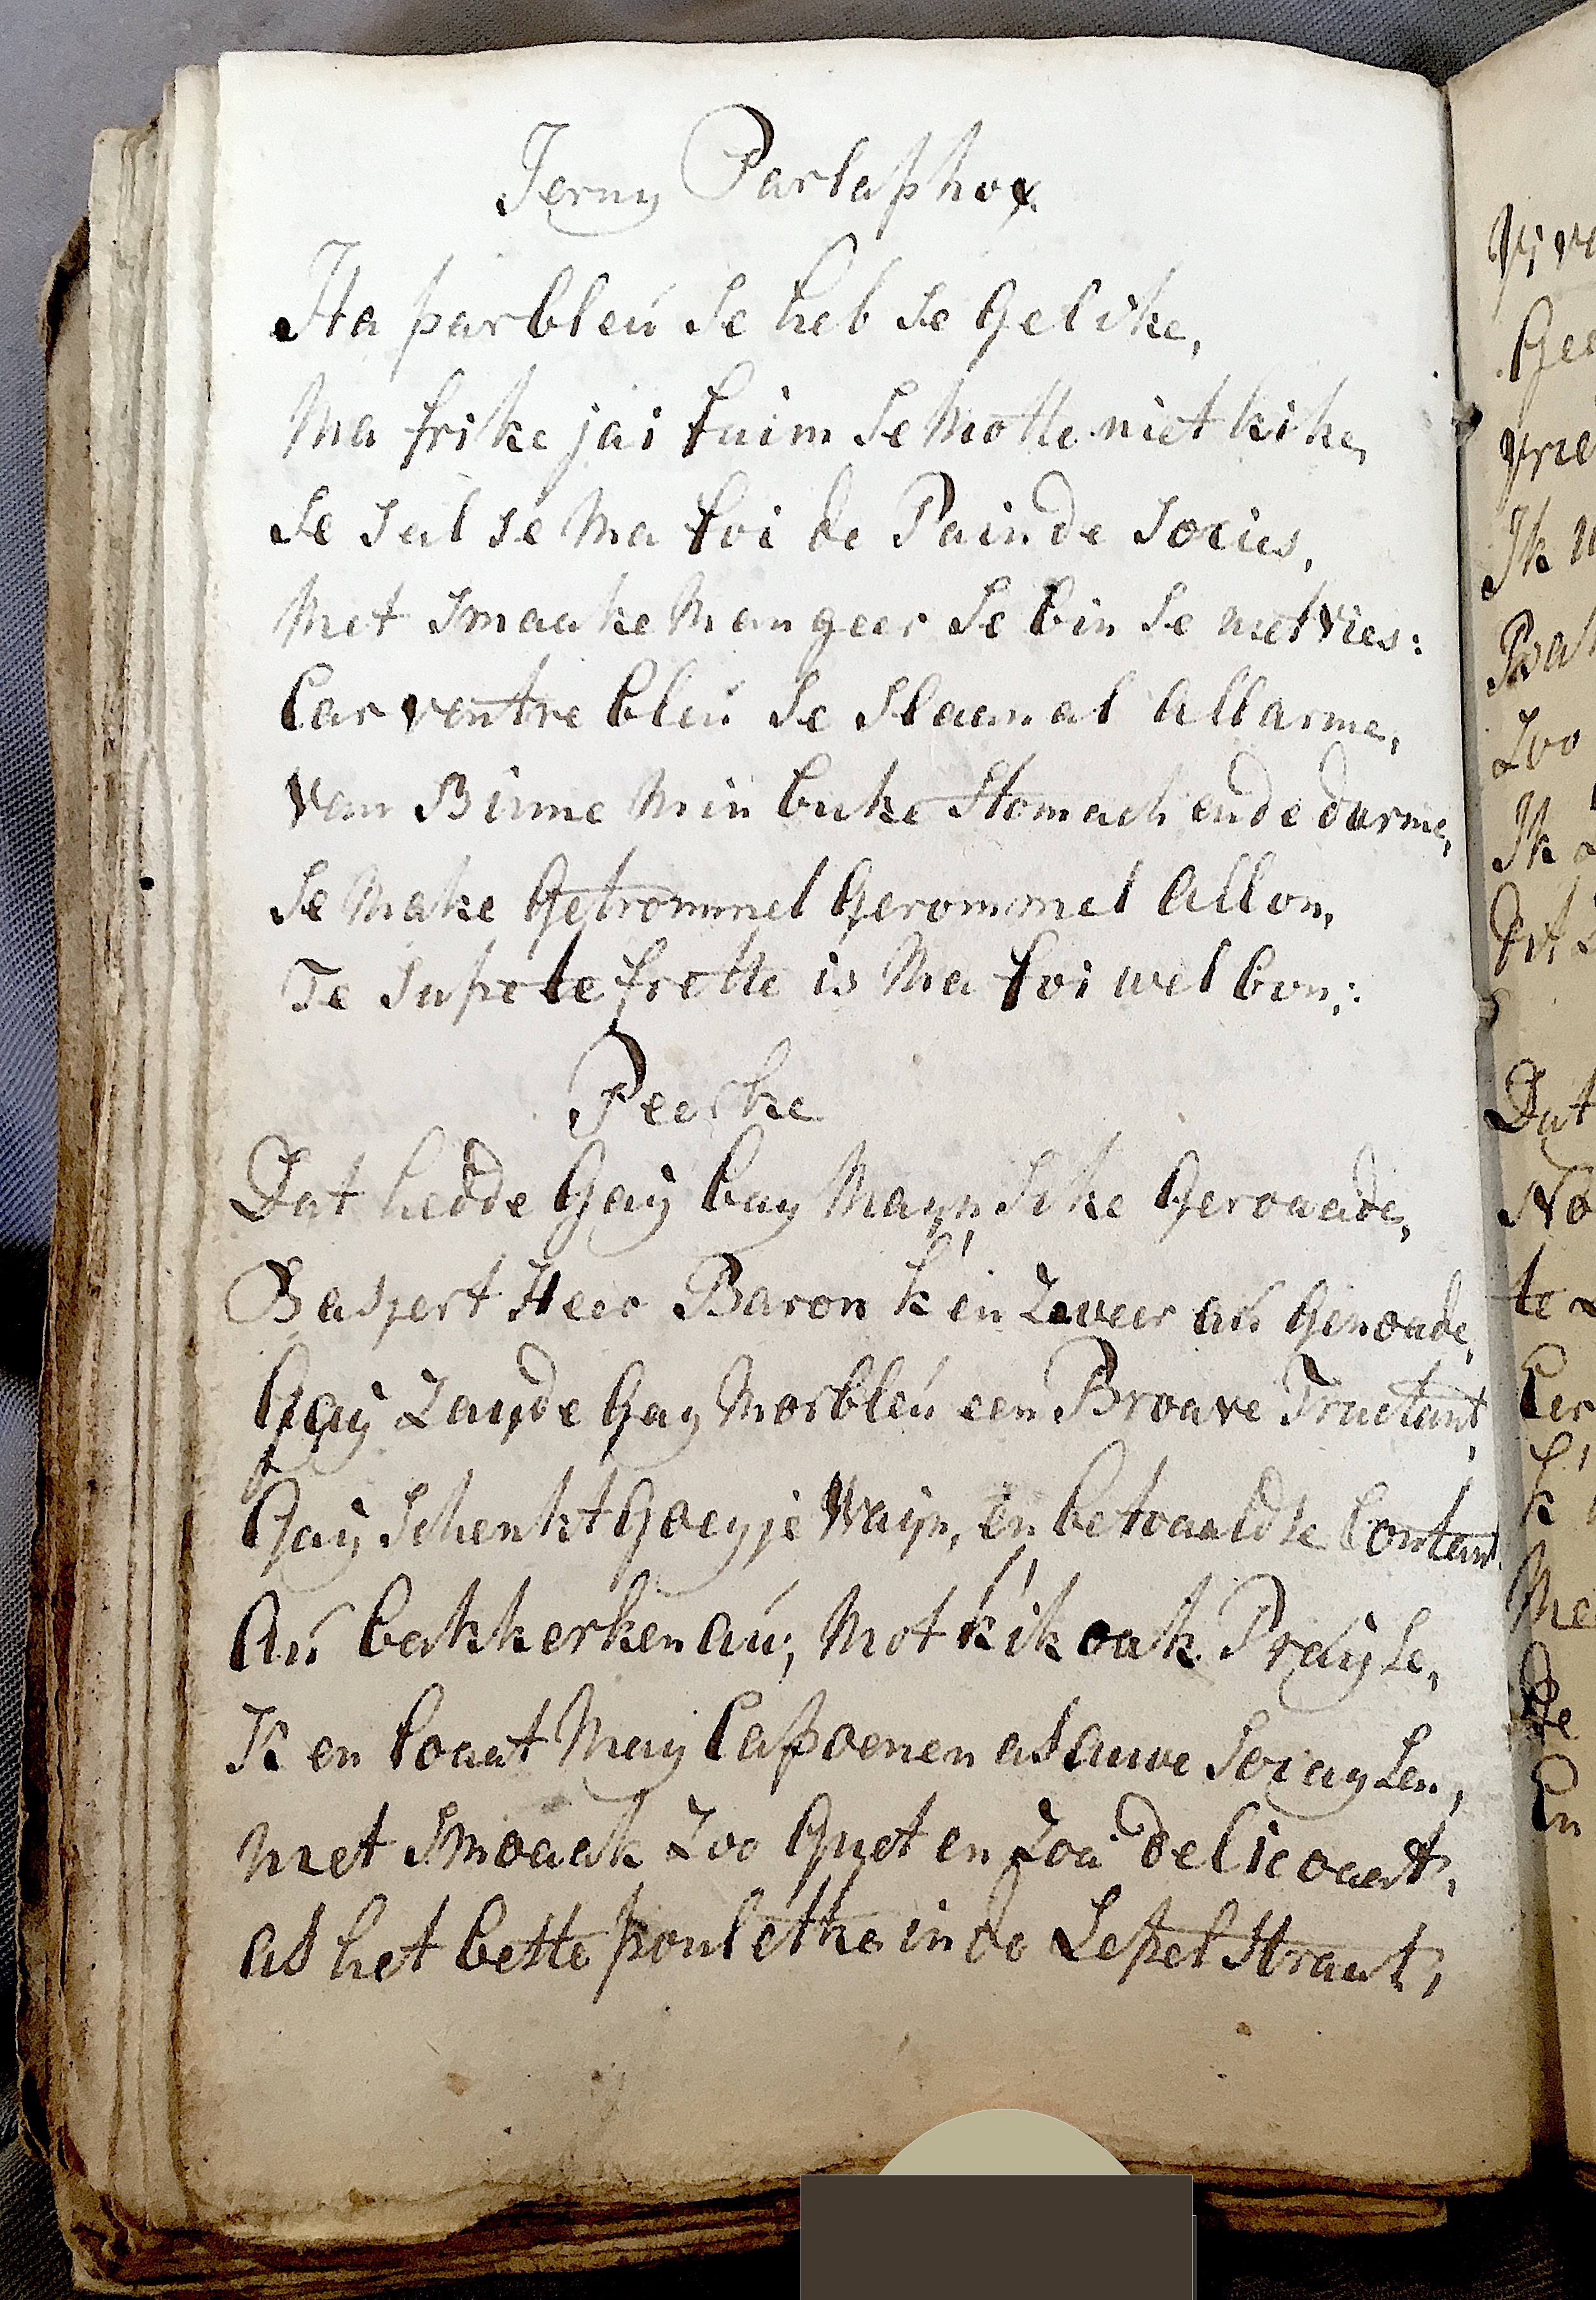 Jerny Parlaphox
Ha parbleú Se heb Se Gelike,
Ma frike jai fuim Se Motte niet kike,
Se Sul Se Ma foi de Pain de Socies,
Met Smaake Mangeer Se bin Se niet vies:
Car ventre bleú Se Slaen al Allarme,
Van Binne Min buke Stomach ende darme,
Se Make Getrommel Gerommel Allon,
Te Supe te frette is Ma foi wel bon,:
Peerke
Dat hedde Gaÿ bay Mayn Sike Geroaade,
Baspert Heer Baron k'en Zeveer aú Genoade,
Gaÿ Zayde Gay Morbleú een Broave Tractant,
Gaÿ Schenkt Goeyje Waijn, en betoaaldte Contant
Aú bakkerken aú; Mot k'ik oak Praÿse,
K en loaat Maÿ Capoenen as auwe Sociaysen,
Met Smoaak Zoo Guet en Zoa delicoaat,
as het beste poulétke in de Lepel Straat,
Gee
Ik
Zoo
Ik
Dat
No
te
De
En